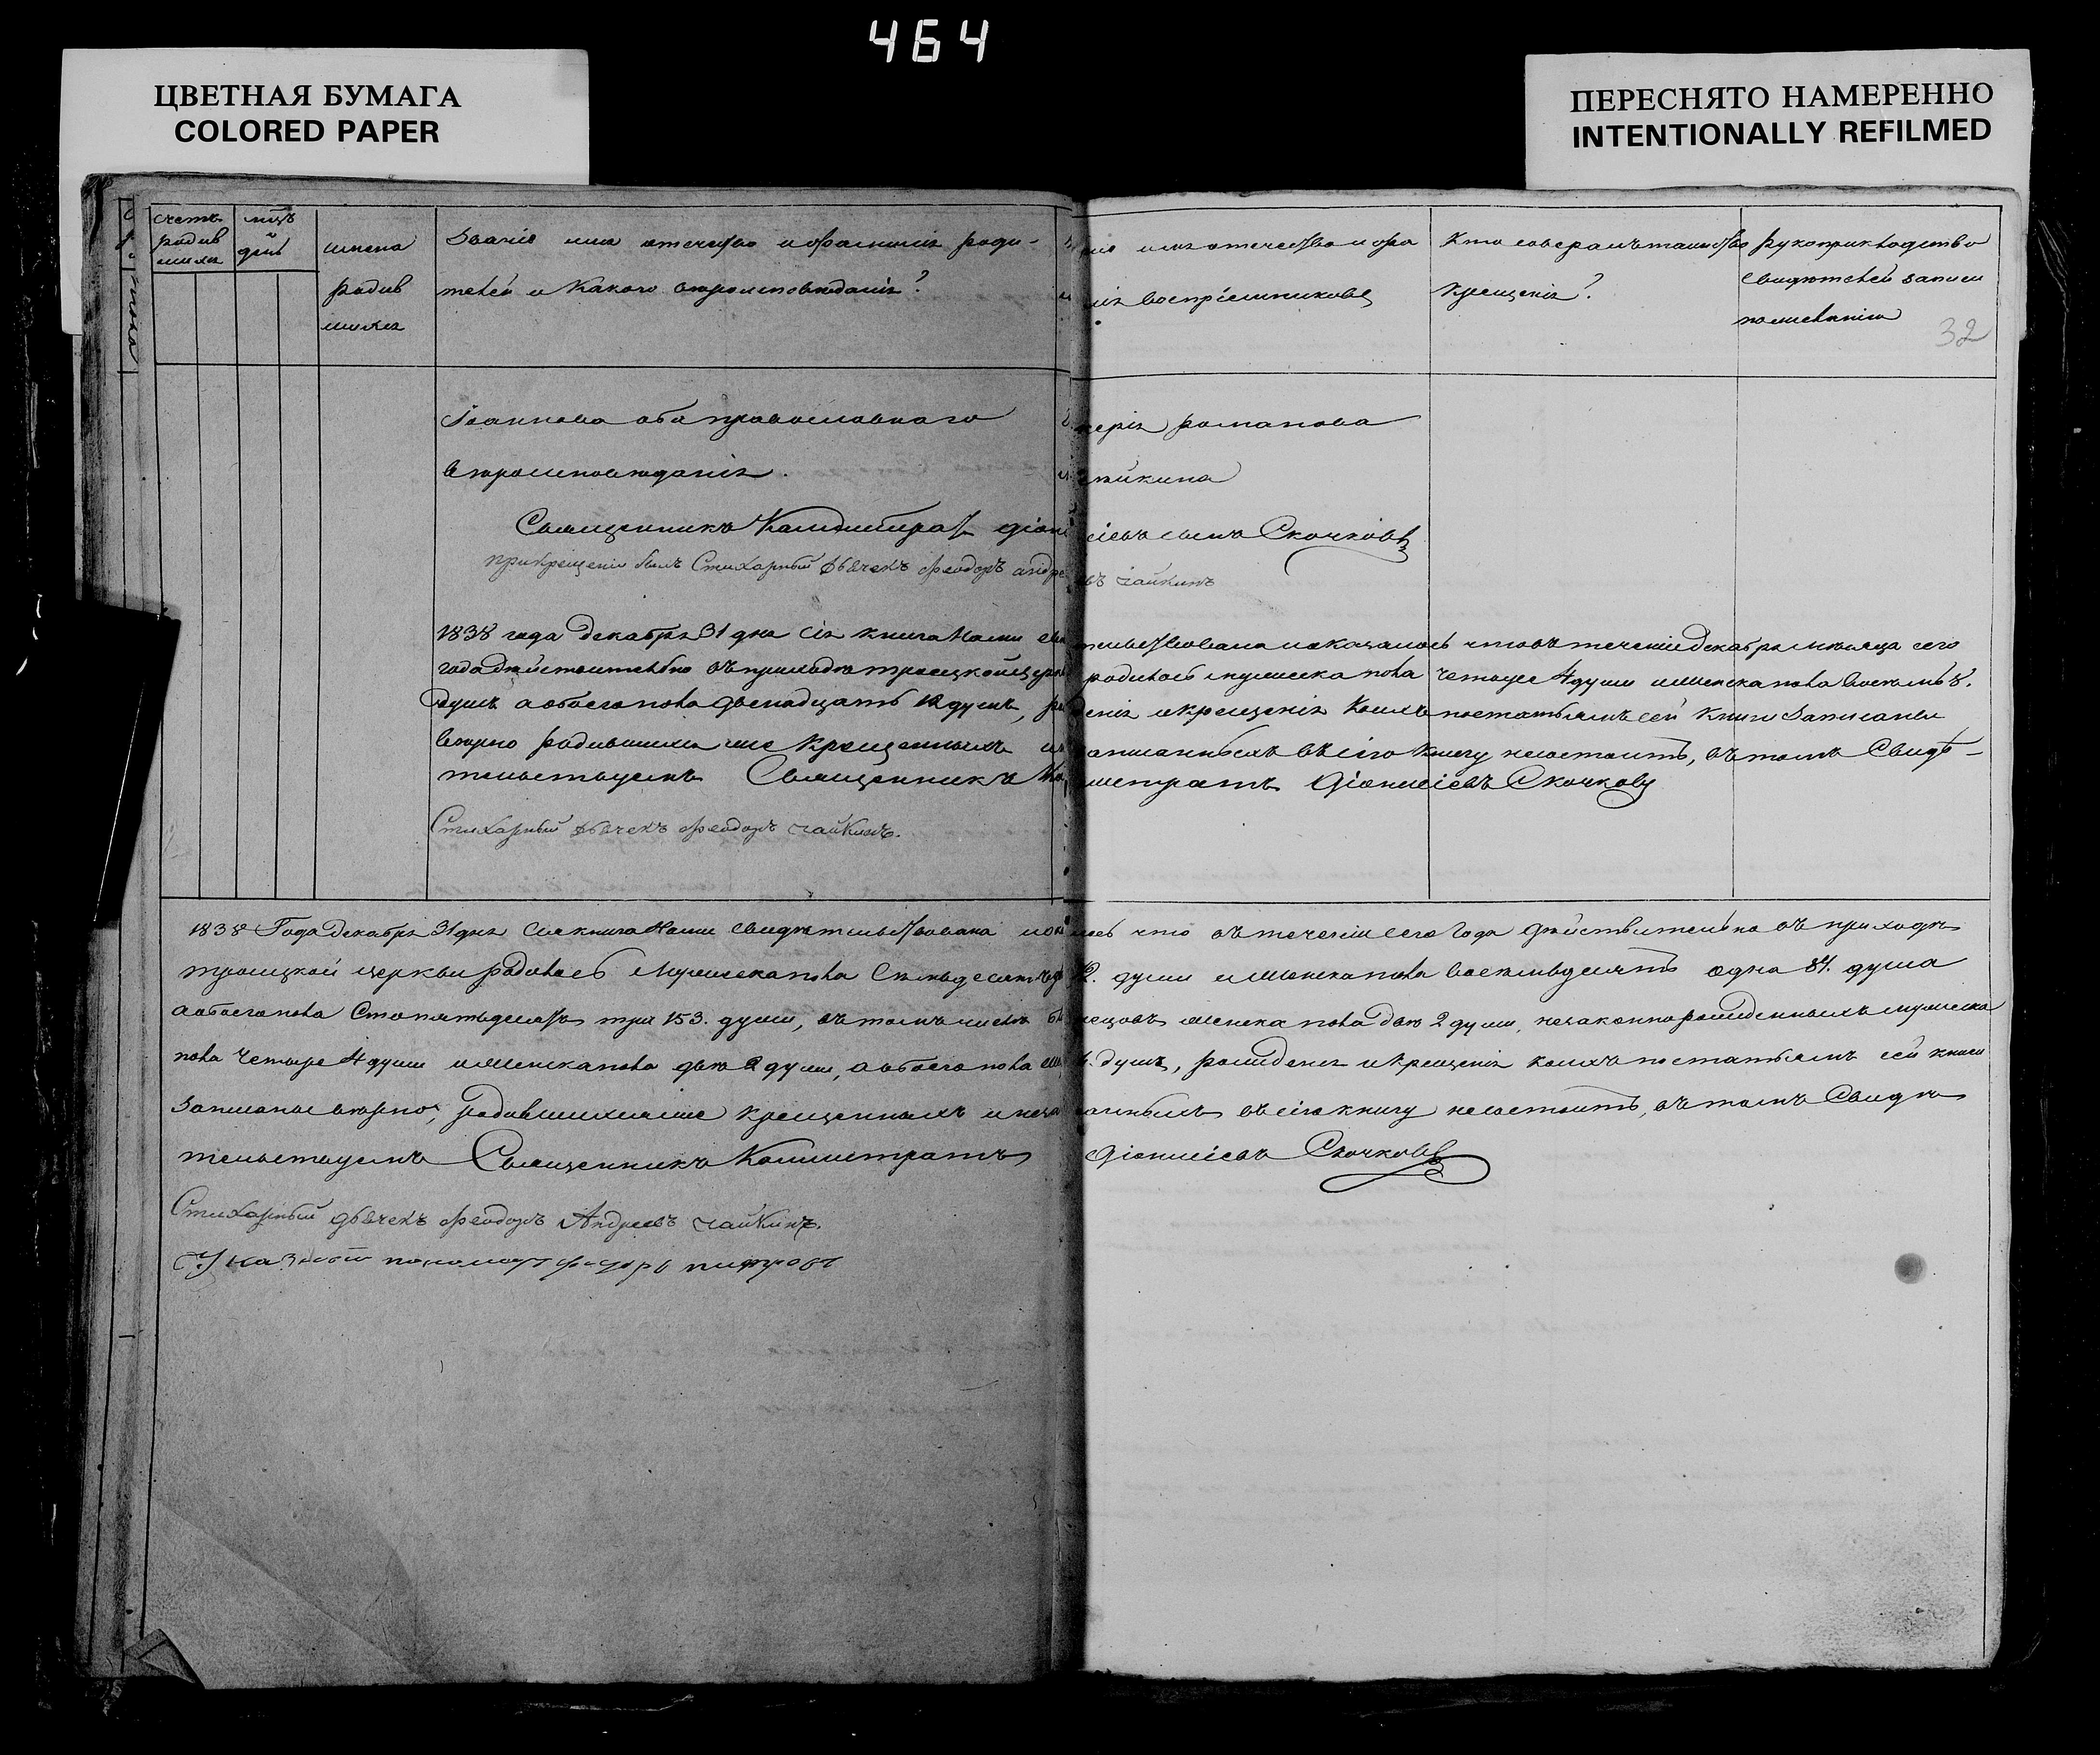 464
ЦВЕТНАЯ БУМАГА
COLORED PAPER
ПЕРЕСНЯТО НАМЕРЕННО
INTENTIONALLY REFILMED
32
счетъ родив шихся
мцъ и день
имена родив шихся
Званіе имя отечество и фамиліи роди-
телей и какого вѣроисповѣданія?
ніе имя отечество и фа
лія воспріемниковъ
Кто совершалъ таинство
крещенія?
рукоприкладство
свидѣтелей записи
по желанію
Іоаннова оба православнаго
вѣроисповѣданія.
Священникъ
романова
сынъ Скочковъ
прикрещеніи былъ Стихарный дьячекъ Феодоръ андре
въ чайкинъ
1838 года декабря 31 дня сія книга нами сви тельствована и оказалось что въ теченіи декабря мѣсяца сего
года дѣйствительно въ приходѣ троицкой церк родилось мужеска пола четыре 4 души и женска пола восемь 8.
душъ а обоего пола двенадцать 12 душъ, ро денія и крещенія коихъ по статьямъ сей книги записаны
вѣрно родившихся же крещенныхъ и не записанныхъ въ сію книгу не состоитъ, въ томъ Свидѣ-
тельствуемъ Священникъ Ка листратъ Діонисіевъ Скочковъ
Стихарный дьячекъ Феодоръ чайкинъ.
1838 Года декабря 31 дня Сія книга Нами свидѣтельствована и ока лось что въ теченіи сего Года дѣйствительно въ приходѣ
троицкой церкви родилось Мужеска пола Семьдесятъ 72. души и Женска пола восемьдесятъ одна 81. душа
а обоего пола Сто пятьдесятъ три 153. души, въ томъ числѣ бли нецовъ женска пола двѣ 2 души, незаконнорожденныхъ мужеска
пола четыре 4 души и Женска пола двѣ 2 души, а обоего пола душъ, рожденія и крещенія коихъ по статьямъ сей книги
записаны вѣрно, родившихся же крещенныхъ и неза санныхъ въ сію книгу не состоитъ, въ томъ Свидѣ
тельствуемъ Священникъ Калистратъ Діонисіевъ Скочковъ
Стихарный дьячекъ Феодоръ Андреевъ чайкинъ.
Указной пономарь петровъ